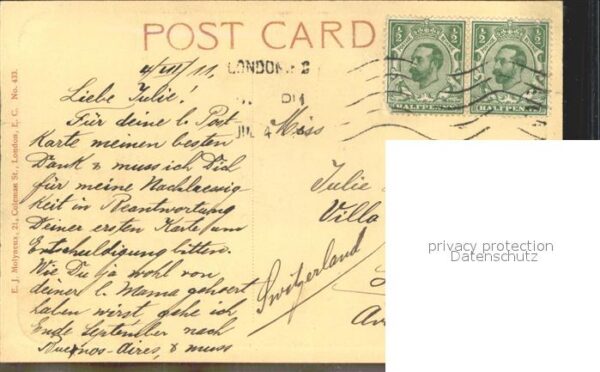 POST CARD
4/VII/11,
LONDON
JUL 4
½ ½ ½ ½
HALFPENNY HALFPENNY
Liebe Julie!
Für deine l. Post
Karte meinen besten
Dank & muss ich Dich
für meine Nachlaessig
keit in Beantwortung
Deiner ersten Karte um
Entschuldigung bitten.
Wie Du ja wohl von
deiner l. Mama gehoert
haben wirst, gehe ich
Ende September nach
Buenos-Aires, & muss
Miss
Julie
Villa
Switzerland
Av
E. J. Molyneux, 21, Coleman St., London, E. C. No. 433.
privacy protection
Datenschutz